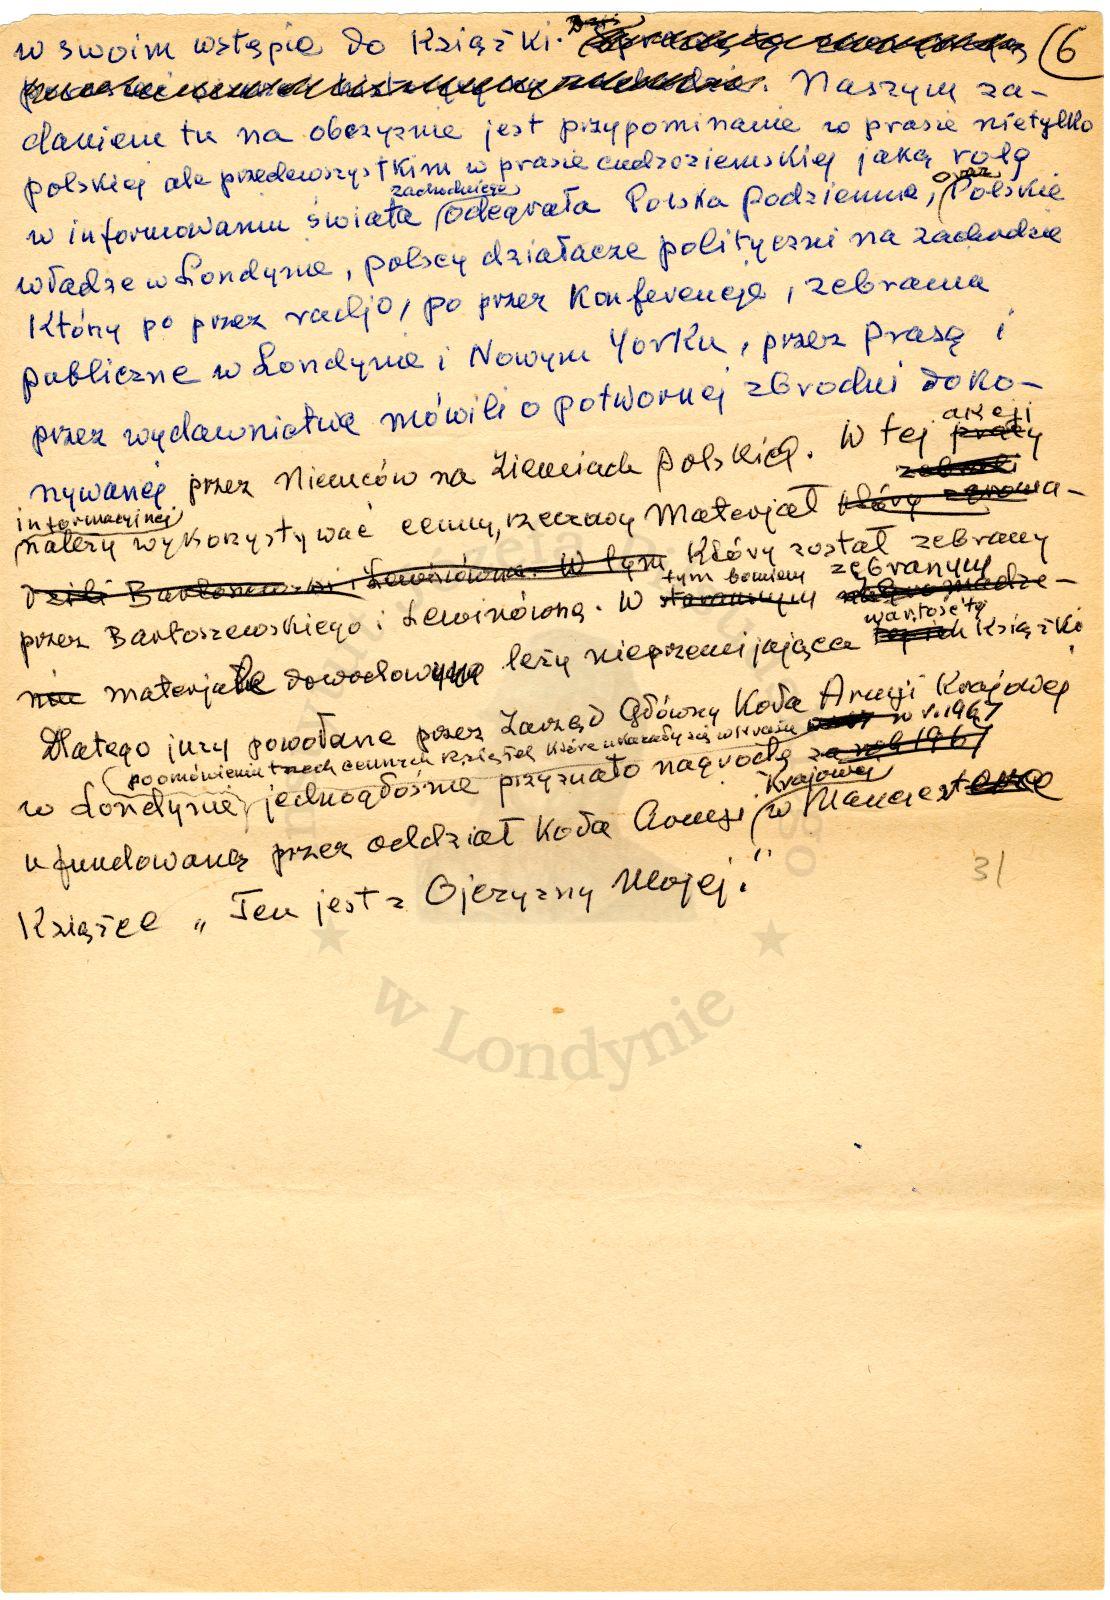 w swoim wstępie do Książki. (6
Naszym za-
daniem tu na obczyznie jest przypominanie w prasie nietylko
polskiej ale przedewszystkim w prasie cudzoziemskiej jaką rolę
zachodniego oraz
w informowaniu świata odegrała Polska Podziemna, Polskie
władze w Londynie, polscy działacze polityczni na zachodzie
Którzy po przez radjo, po przez Konferencje, zebrania
publiczne w Londynie i Nowym Yorku, przez prasę i
przez wydawnictwa mówili o potwornej zbrodni doko-
akcji
nywanej przez Niemców na Ziemiach Polskich. W tej pracy
informacyjnej zebrali
należy wykorzystywać cenny, rzeczowy Materjał który zgroma-
dzili Bartoszewski i Lewinówna. W tym Który został zebrany
tym bowiem zebranym
przez Bartoszewskiego i Lewinówną. W starannym nagromadze-
wartość tej
niu materjale dowodowym leży nieprzemijająca tej ich Książki
Dlatego jury powołane przez Zarząd Główny Koła Armji Krajowej
po omówieniu trzech cennych Książek które ukazały się w Kraju w r. 1967
w Londynie jednogłośnie przyznało nagrodę za rok 1967
Krajowej
ufundowaną przez oddział Koła Armji w Manchester
Książce „Ten jest z Ojczyzny Mojej."
31
w Londynie